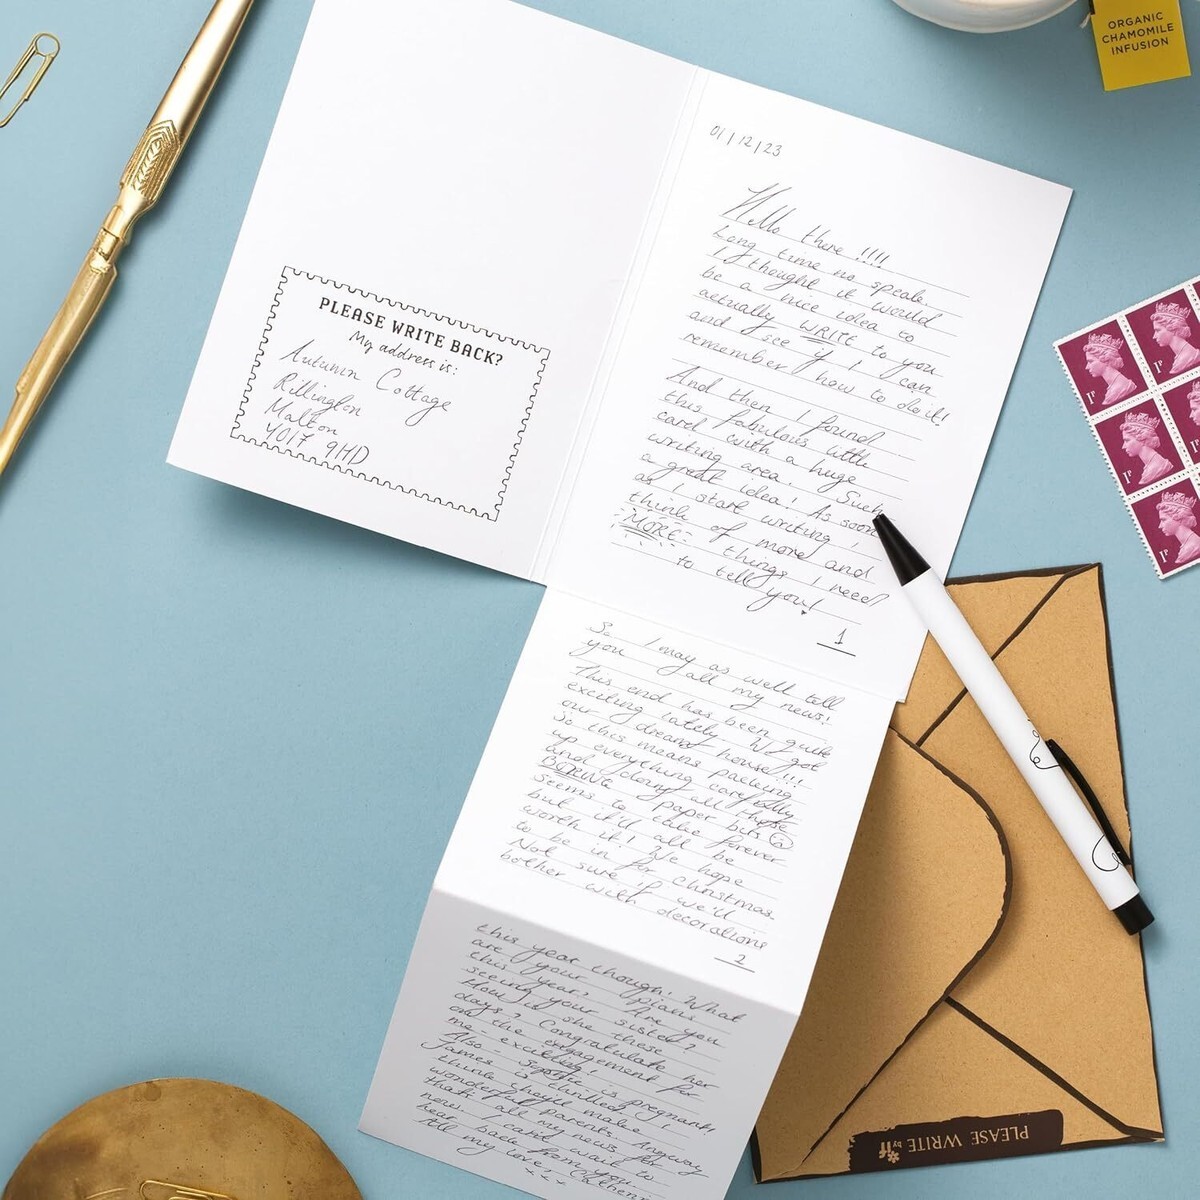 ORGANIC
CHAMOMILE
INFUSION
PLEASE WRITE BACK?
My address is:
Autumn Cottage
Rillington
Malton
YO17 9HD
01/12/23
Hello there!!!!
Long time no speak.
I thought it would
be a nice idea to
actually WRITE to you
and see if I can
remember how to do it!
And then I found
this fabulous little
card with a huge
writing area. Such
a great idea! As soon
as I start writing, I
think of more and
MORE things I need
to tell you!
1
So I may as well tell
you all my news!
This end has been quite
exciting lately. We got
our dream house!!!
So this means packing
up everything carefully
and doing all those
BORING paper bits
seems to take forever
but it'll all be
worth it! We hope
to be in for Christmas.
Not sure if we'll
bother with decorations
2
this year though! What
are your plans
this year? Are you
seeing your sister?
How is she these
days? Congratulate her
on the engagement for
me - exciting!
Also - Sophie is pregnant!
James is thrilled. I
think they'll make
wonderful parents. Anyway
that's all my news for
now. Can't wait to
hear back from you.
All my love, Catherine
x x x
1P
1P
1P
1P
1P
PLEASE WRITE by ff